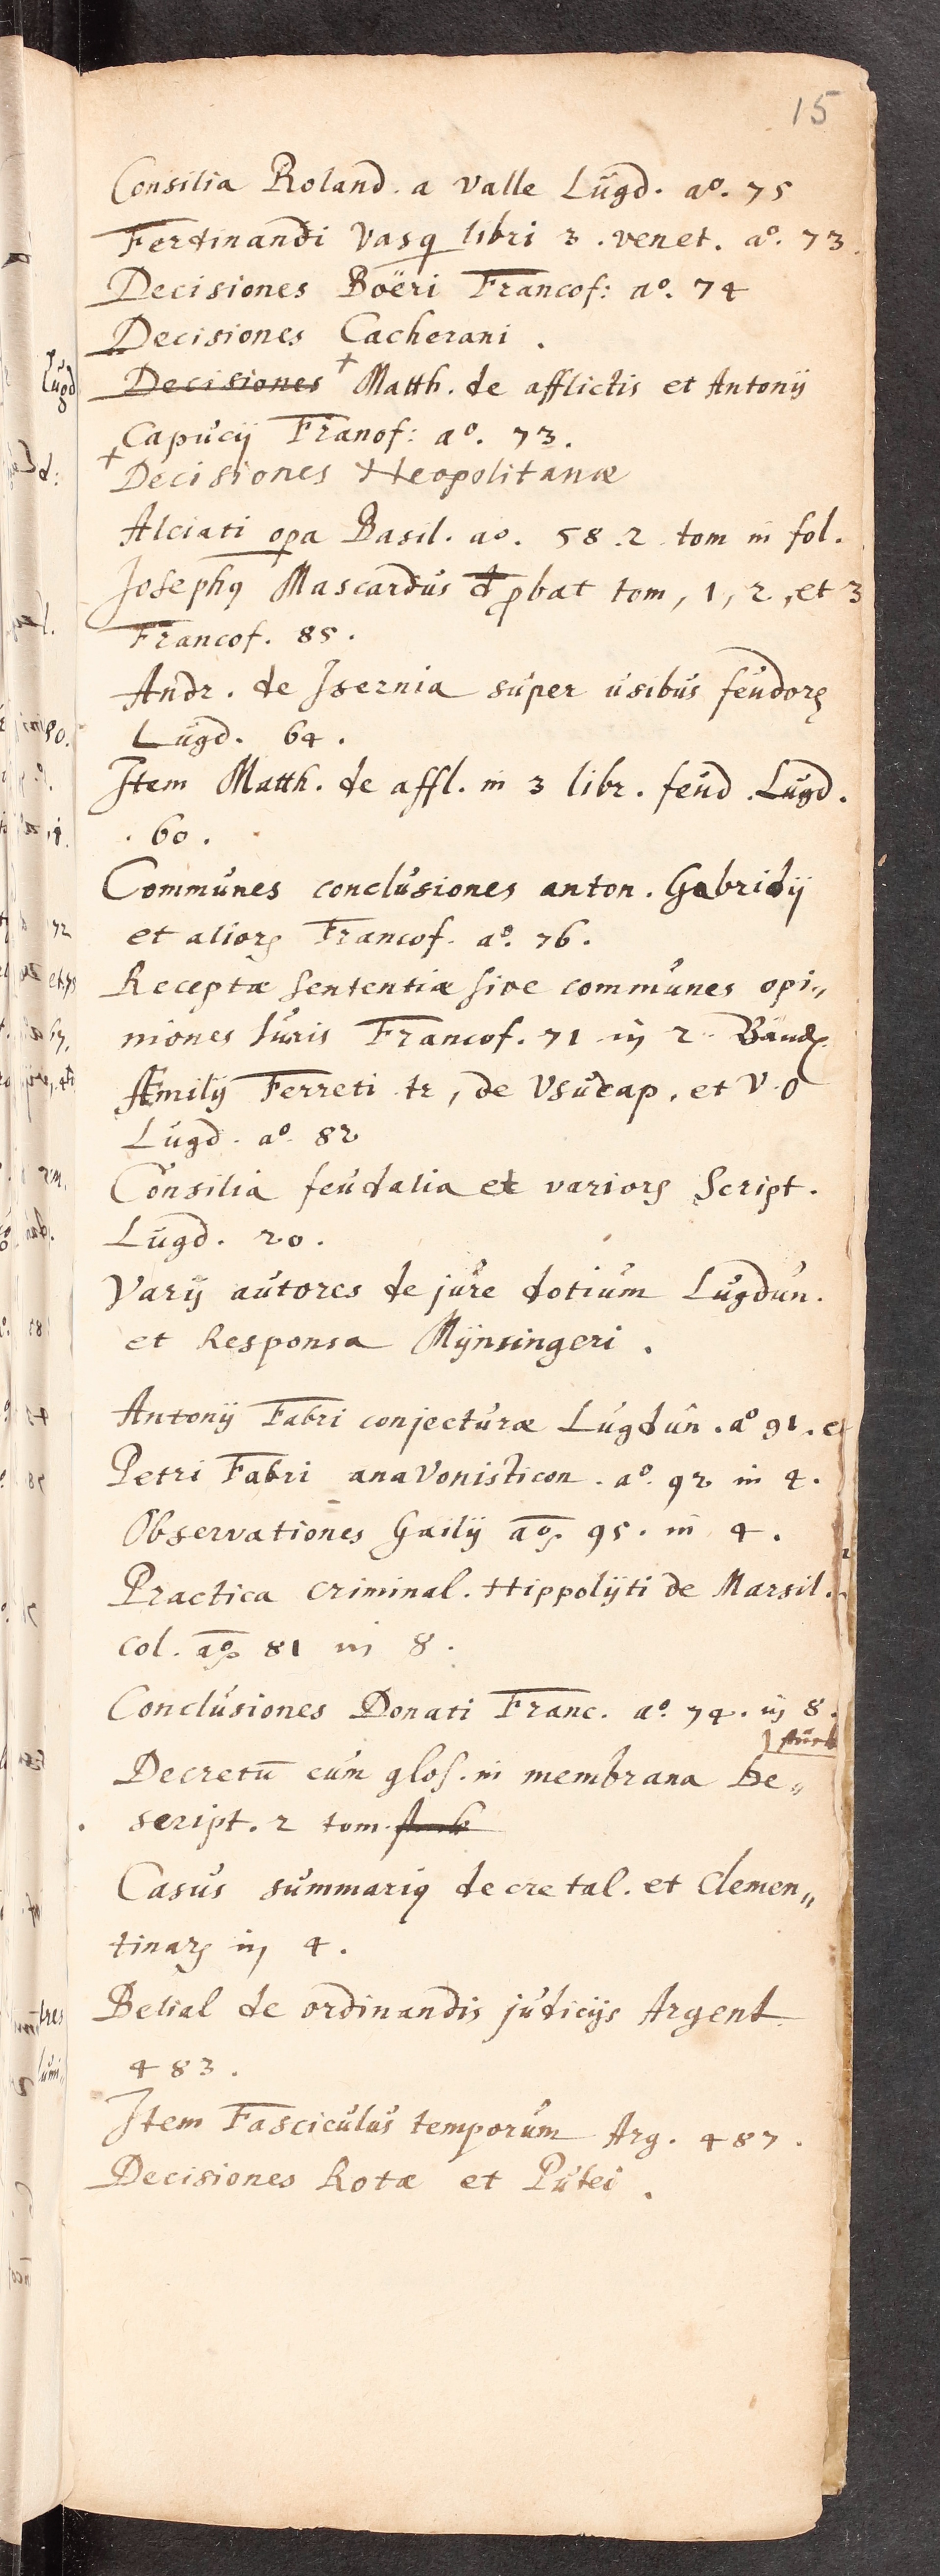 15
Consilia Roland. a Valle Lugd. ao. 75
Ferdinandi Vasq libri 3. venet. ao. 73.
Decisiones Boëri Francof: ao. 74
Decisiones Cacherani.
Decisiones + Matth. de afflictis et Antonij
Capucij Franof: ao. 73.
+ Decisiones Neopolitanæ
Alciati opa Basil. ao. 58. 2 tom in fol.
Josephq Mascardus d pbat tom, 1, 2, et 3
Francof. 85.
Andr. de Isernia super usibus feudorꝫ
Lugd. 64.
Item Matth. de affl. in 3 libr. feud. Lugd.
. 60.
Communes conclusiones anton. Gabridij
et aliorꝫ Francof. ao. 76.
Receptæ sententiæ sive communes opi„
niones Iuris Francof. 71 in 2 Bänd
Æmilij Ferreti tr, de Usucap. et V. O
Lugd. ao. 82
Consilia feudalia et variorꝫ Script.
Lugd. 20.
Varij autores de jure dotium Lugdun.
et Responsa Mÿnsingeri.
Antonij Fabri conjecturæ Lugdun. ao 91. et
Petri Fabri anavonisticon. ao. 92 in 4.
Observationes Gailij ao. 95. in 4.
Practica criminal. Hippolÿti de Marsil.
col. ao. 81 in 8.
Conclusiones Donati Franc. ao. 74. in 8.
Decretū cum glos. in membrana be„
script. 2 tom.
Casus summariq decretal. et Clemen„
tinarꝫ in 4.
Belial de ordinandis judicijs Argent
483.
Item Fasciculus temporum Arg. 487.
Decisiones Rotæ et Putei.